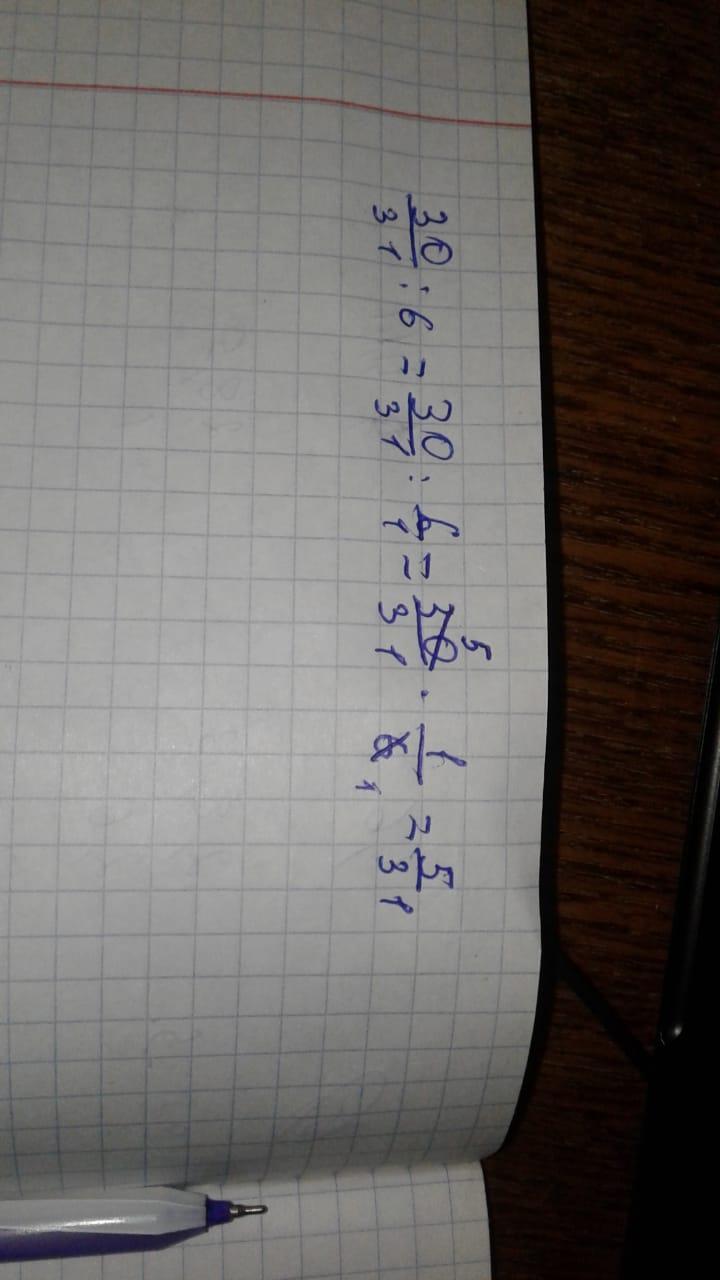 30/31 : 6 = 30/31 : 6/1 = 30/31 5 · 1/6 1 = 5/31